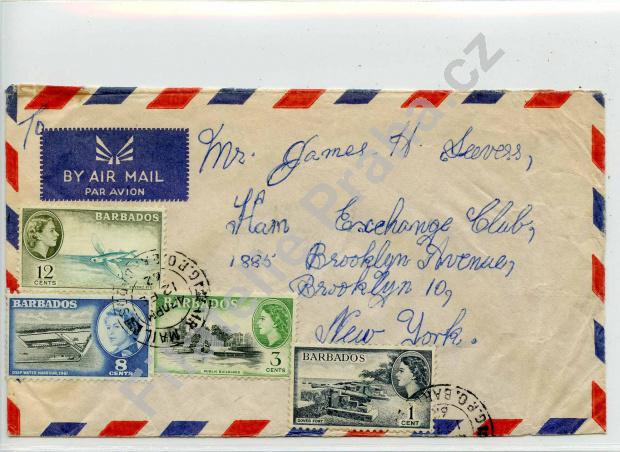 To
BY AIR MAIL
PAR AVION
Mr. James H. Seevers,
Ham Exchange Club,
1885 Brooklyn Avenue,
Brooklyn 10,
New York.
BARBADOS
12
CENTS
BARBADOS
8
CENTS
DEEP WATER HARBOUR, 1961
BARBADOS
3
CENTS
PUBLIC BUILDINGS
BARBADOS
1
CENT
DOVER FORT
AIR MAIL
G.P.O. BAR
Filatelie Praha.cz